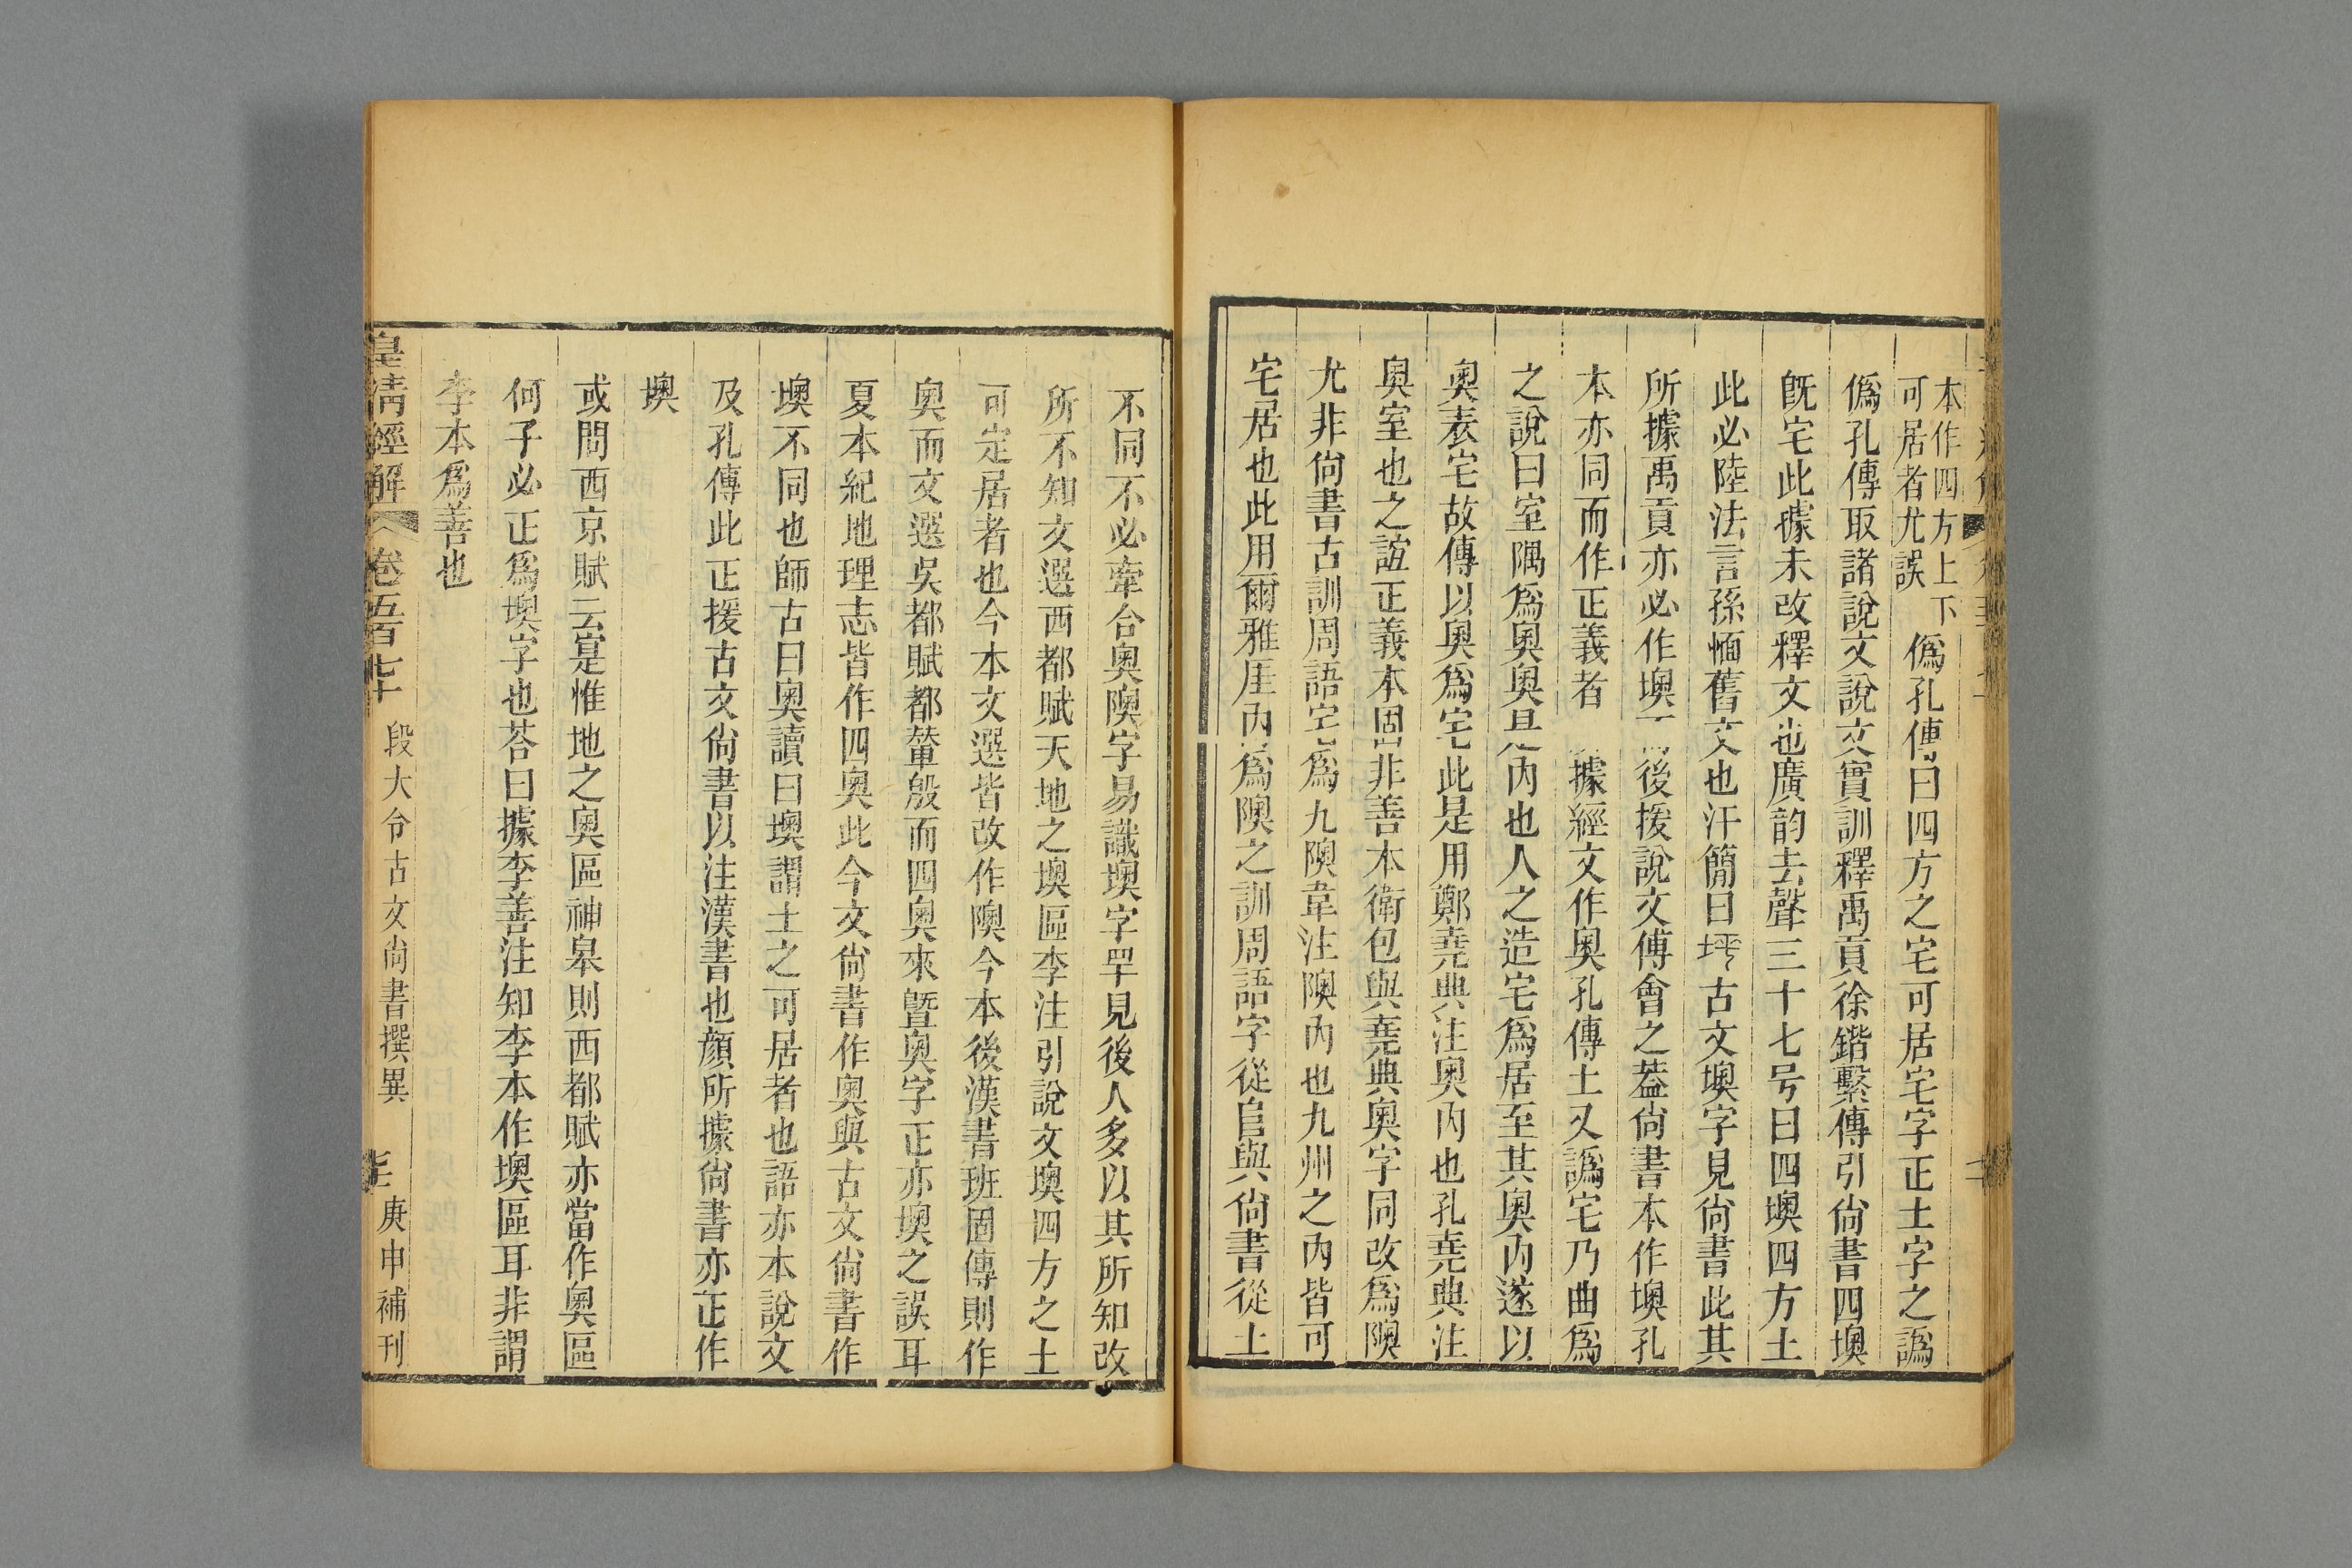 本作四方上下
可居者尤誤
僞孔傳曰四方之宅可居宅字正土字之譌
僞孔傳取諸說文說文實訓釋禹貢徐鍇繫傳引尙書四墺
旣宅此據未改釋文也廣韵去聲三十七号曰四墺四方土
此必陸法言孫愐舊文也汗簡曰古文墺字見尙書此其
所據禹貢亦必作墺後援說文傅會之葢尙書本作墺孔
本亦同而作正義者據經文作奧孔傳土又譌宅乃曲爲
之說曰室隅爲奧奧是內也人之造宅爲居至其奧內遂以
奧表宅故傳以奧爲宅此是用鄭堯典注奧內也孔堯典注
奧室也之誼正義本固非善本衛包與堯典奧字同改爲隩
尤非尙書古訓周語宅爲九隩韋注隩內也九州之內皆可
宅居也此用爾雅厓內爲隩之訓周語字從𨸏與尙書從土
不同不必牽合奧隩字易識墺字罕見後人多以其所知改
所不知文選西都賦天地之墺區李注引說文墺四方之土
可定居者也今本文選皆改作隩今本後漢書班固傳則作
奧而文選吳都賦都輦殷而四奧來曁奧字正亦墺之誤耳
夏本紀地理志皆作四奧此今文尙書作奧與古文尙書作
墺不同也師古曰奧讀曰墺謂土之可居者也語亦本說文
及孔傳此正援古文尙書以注漢書也顔所據尙書亦正作
墺
或問西京賦云寔惟地之奧區神皋則西都賦亦當作奧區
何子必正爲墺字也荅曰據李善注知李本作墺區耳非謂
李本爲善也
皇淸經解 卷五百七十 段大令古文尙書撰異 庚申補刊